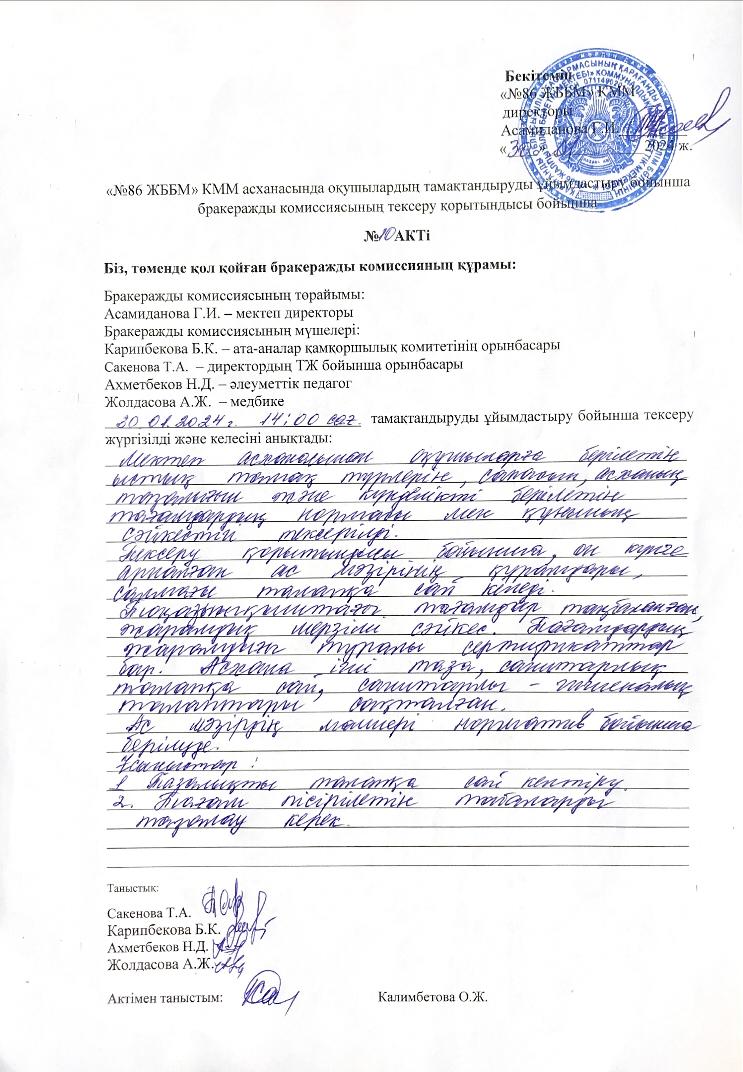 Бекітемін
«№86 ЖББМ» КММ
директоры
Асамиданова Г.И.
2024 ж.
«№86 ЖББМ» КММ асханасында оқушылардың тамақтандыруды ұйымдастыру бойынша
бракеражды комиссиясының тексеру қорытындысы бойынша
№10 АКТі
Біз, төменде қол қойған бракеражды комиссияның құрамы:
Бракеражды комиссиясының төрайымы:
Асамиданова Г.И. – мектеп директоры
Бракеражды комиссиясының мүшелері:
Карипбекова Б.К. – ата-аналар қамқоршылық комитетінің орынбасары
Сакенова Т.А. – директордың ТЖ бойынша орынбасары
Ахметбеков Н.Д. – әлеуметтік педагог
Жолдасова А.Ж. – медбике
30.01.2024 г. 14:00 сағ. тамақтандыруды ұйымдастыру бойынша тексеру
жүргізілді және келесіні анықтады:
Мектеп асханасынан оқушыларға берілетін
ыстық тамақ түрлерін, сапасын, асхананың
тазалығын және күнделікті берілетін
тағамдардың нормасы мен құнының
сәйкестігі тексерілді.
Тексеру қорытындысы бойынша, он күнге
арналған ас мәзірінің құрамдары,
салмағы талапқа сай келеді.
Тоңазытқыштағы тағамдар таңбаланған,
жарамдық мерзімі сәйкес. Тағамдардың
жарамдығы туралы сертификаттар
бар. Асхана іші таза, санитарлық
талапқа сай, санитарлы - гигеналық
талаптары сақталған.
Ас мәзірдің мөлшері норматив бойынша
берілуде.
Ұсыныстар:
1. Тазалықты талапқа сай келтіру.
2. Тағам пісірілетін табаларды
тазалау керек.
Таныстық:
Сакенова Т.А.
Карипбекова Б.К.
Ахметбеков Н.Д.
Жолдасова А.Ж.
Актімен таныстым: Калимбетова О.Ж.